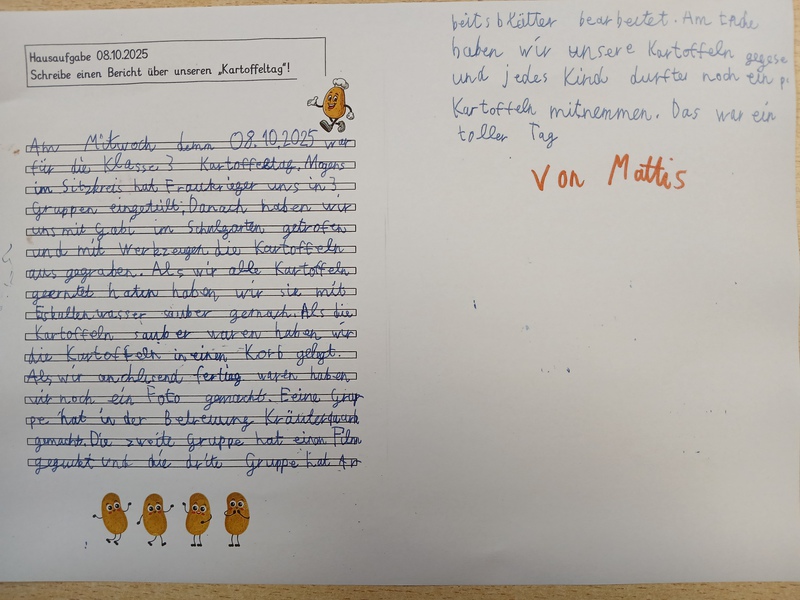 Hausaufgabe 08.10.2025
Schreibe einen Bericht über unseren „Kartoffeltag"!
Am Mitwoch demm 08.10.2025 war
für die Klasse 3 Kartoffeltag. Mogens
im Sitzkreis hat Frau Krüger uns in 3
Gruppen eingeteilt. Danach haben wir
uns mit Gabi im Schulgarten getrofen
und mit Werkzeugen die Kartoffeln
aus gegraben. Als wir alle Kartoffeln
geerntet haten haben wir sie mit
Eiskalten wasser sauber gemach. Als die
Kartoffeln sauber waren haben wir
die Kartoffeln in einen Korb gelegt.
Als wir anchlisend fertiag waren haben
wir noch ein Foto gemacht. Eeine Grup
pe hat in der Betreuung Kräuterquark
gemacht. Die zweite Gruppe hat einen Film
geguckt und die drite Gruppe hat Ar
beitsblätter bearbeitet. Am Ende
haben wir unsere Kartoffeln gegese
und jedes Kind durfte noch ein p
Kartoffeln mitnemmen. Das war ein
toller Tag
Von Mattis